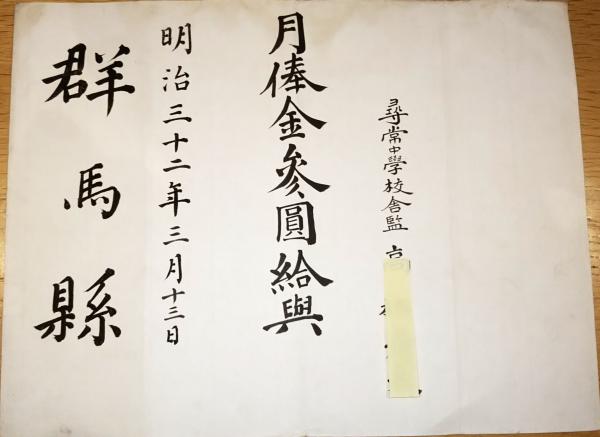 尋常中學校舍監 高
月俸金參圓給與
明治三十二年三月十三日
群馬縣